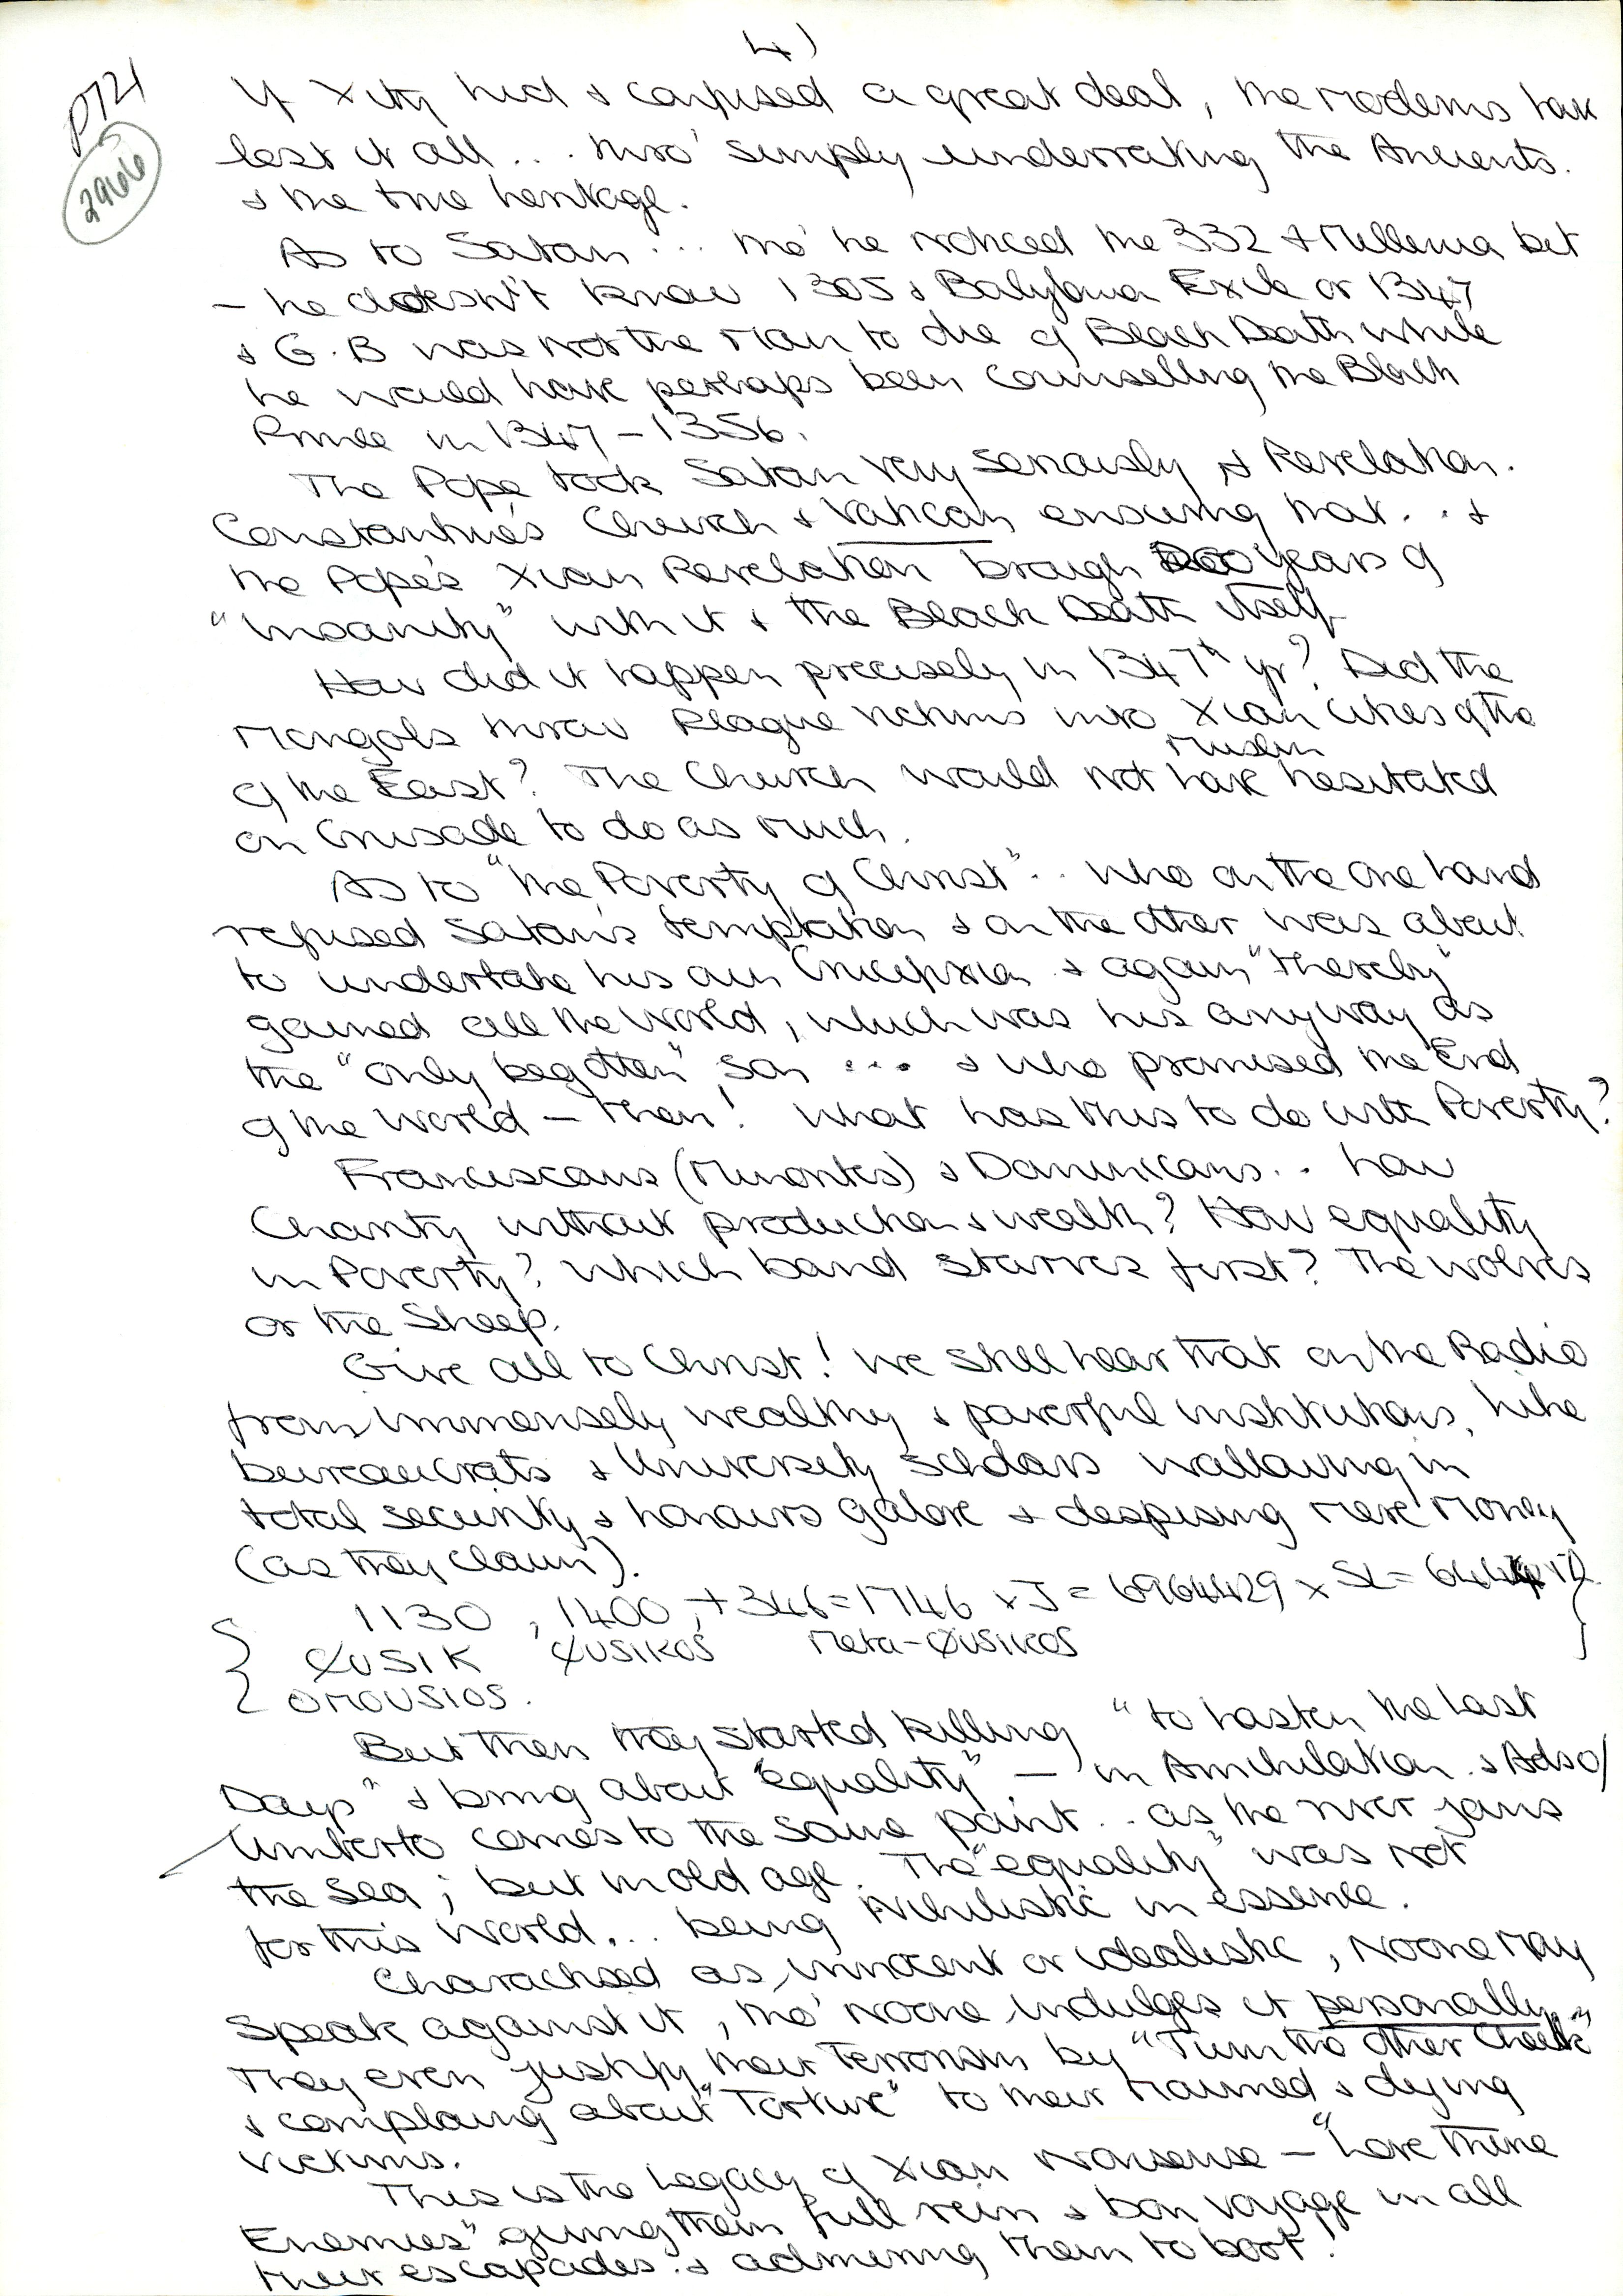 4)
P721
2966
If Xity hid & confused a great deal, the Moderns have
lost it all... thro' simply underrating the Ancients.
& the true heritage.
As to Satan... tho' he noticed the 332 & Millenia bet
- he doesn't know 1305 & Babylonia Exile or 1347
& G.B was not the man to die of Black Death while
he would have perhaps been counselling the Black
Prince in 1347-1356.
The Pope took Satan very seriously & Revelation.
Constantine's Church & Vatican ensuring that.. &
the Pope's Xian Revelation brough years of
"insanity" with it & the Black Death itself
How did it happen precisely in 1347th yr? Did the
Mongols throw Plague victims into Xian cities of the
Muslim
of the East? The Church would not have hesitated
on Crusade to do as much.
As to "the Poverty of Christ".. who on the one hand
refused Satan's temptation & on the other was about
to undertake his own Crucifixion & again "thereby"
gained all the World, which was his anyway as
the "only begotten" son ... & who promised the End
of the World - then! What has this to do with Poverty?
Franciscans (Minorites) & Dominicans.. how
Charity without production & wealth? How equality
in Poverty? Which band starves first? The wolves
or the Sheep.
Give all to Christ! We still hear that on the Radio
from immensely wealthy & powerful institutions, like
bureaucrats & University scholars wallowing in
total security & honours galore & despising mere Money
(as they claim).
1130, 1400, +346=1746 x J = 6964429 x SL =
ØUSIK ØUSIKOS Meta-ØUSIKOS
OMOUSIOS.
But then they started killing "to hasten the last
Days" & bring about "equality" - in Annihilation. & Adso/
Umberto comes to the same point.. as the river joins
the Sea; but in old age. The "equality" was not
for this World... being Nihilistic in essence.
Charachsed as innocent or idealistic, Noone May
Speak against it, tho' Noone indulges it personally.
They even justify their Terrorism by "Turn the other Cheek"
& complaing about "Torture" to their maimed & dying
victims.
This is the Legacy of Xian Nonsense - "Love Thine
Enemies" giving them full rein & bon voyage in all
their escapades. & admiring them to boot!